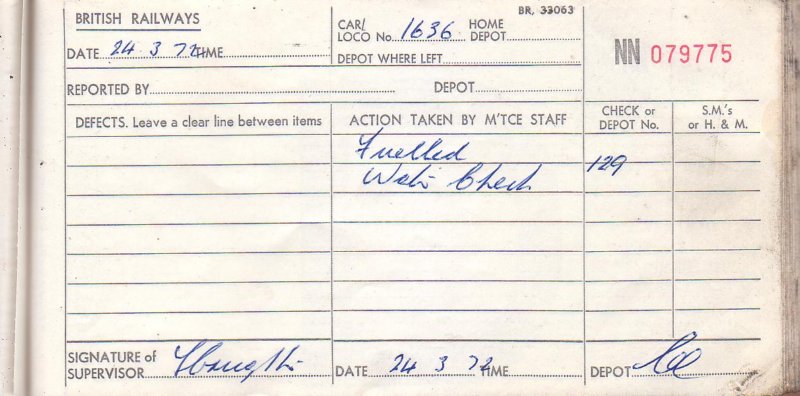 BR. 33063
BRITISH RAILWAYS
DATE 24 3 72 TIME
CAR/ LOCO No. 1636 HOME DEPOT
DEPOT WHERE LEFT
NN 079775
REPORTED BY DEPOT
DEFECTS. Leave a clear line between items
ACTION TAKEN BY M'TCE STAFF
CHECK or DEPOT No.
S.M.'s or H. & M.
Fuelled
Check 129
SIGNATURE of SUPERVISOR
DATE 24 3 72 TIME
DEPOT